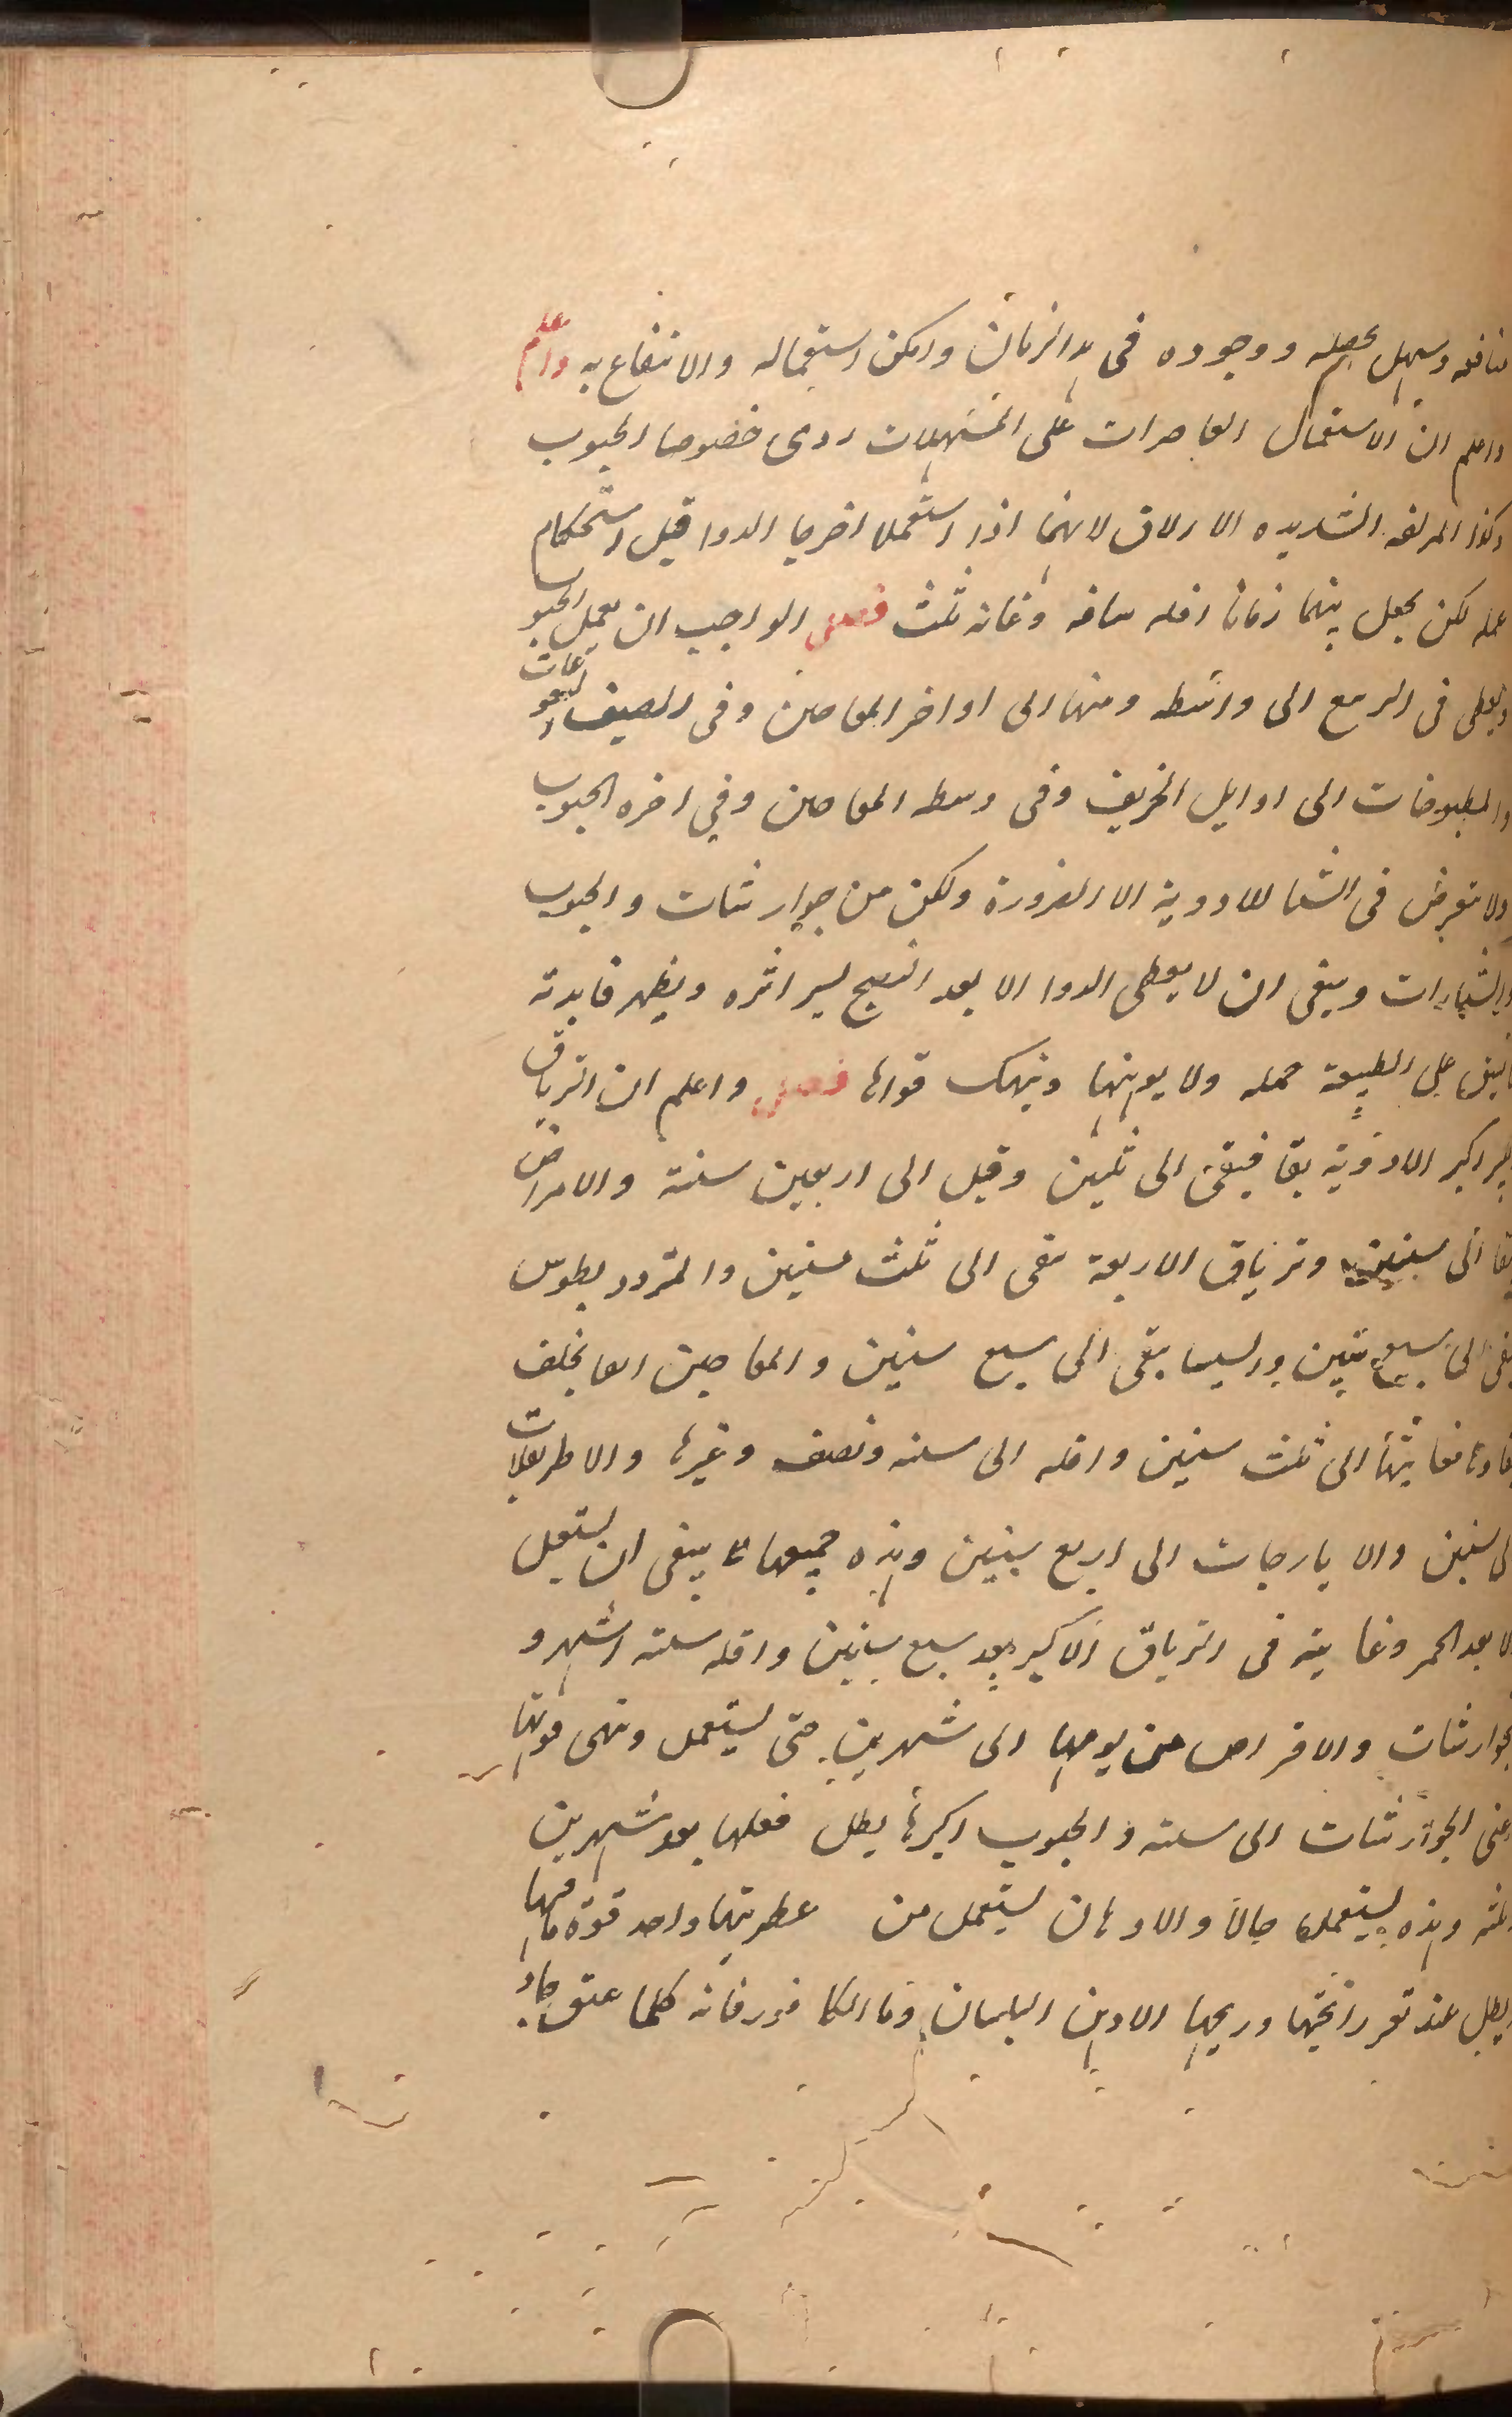 منافعه وسهل تحصله ووجوده فى هذا الزمان وامكن استعماله والانتفاع به واعلم
واعلم ان الاستعمال العاصرات على المسهلات ردى خصوصا الحبوب
وكذا المزلقه الشديده الازلاق لانهما اذا استعملا اخرجا الدوا قبل استحكام
عمله لكن يجعل بينهما زمانا اقله ساعه وغاته ثلث فصل الواجب ان يعمل الحبوب
ويعطى فى الربيع الى واسطه ومنها الى اواخر المعاجين وفى الصيف النقوعات
والمطبوخات الى اوايل الخريف وفى وسط المعاجين وفي اخره الحبوب
ولا تتعرض فى الشتا للادوية الا الضرورة ولكن من جوارشات والحبوب
والشيارات وينبغى ان لا يعطى الدوا الا بعد النضج ليسر اثره ويظهر فايدته
على الطبيعة حمله ولا يوهنها وينهك قواها فصل واعلم ان الترياق
اكبر الادوية بقا فيبقى الى ثلثين وقيل الى اربعين سنة والامراض
الى سنتين وترياق الاربعة يبقى الى ثلث سنين والمثرود يطوس
يبقى الى سبع سنين ورليسا يبقى الى سبع سنين والمعاجين العا يخلف
فغايتها الى ثلث سنين واقله الى سنه ونصف وغيرها والاطريفلات
الى سنين والايارجات الى اربع سنين وهذه جميعها لا ينبغى ان يستعمل
الا بعد الخمر وغايته فى الترياق الاكبر بعد سبع سنين واقله ستة اشهر و
الجوارشات والاقراص من يومها الى شهرين حتى يستعمل وتنهى قوتها
اعنى الجوارشات الى سنه والحبوب اكبرها يبطل فعلها بعد شهرين
وثلثه وهذه يستعملها حالا والادهان يستعمل من عطريتها واحد قوة مافيها
ويبطل عند تغير رائحتها وريحها الا دهن البلسان وما الكافور فانه كلما عتق جاد